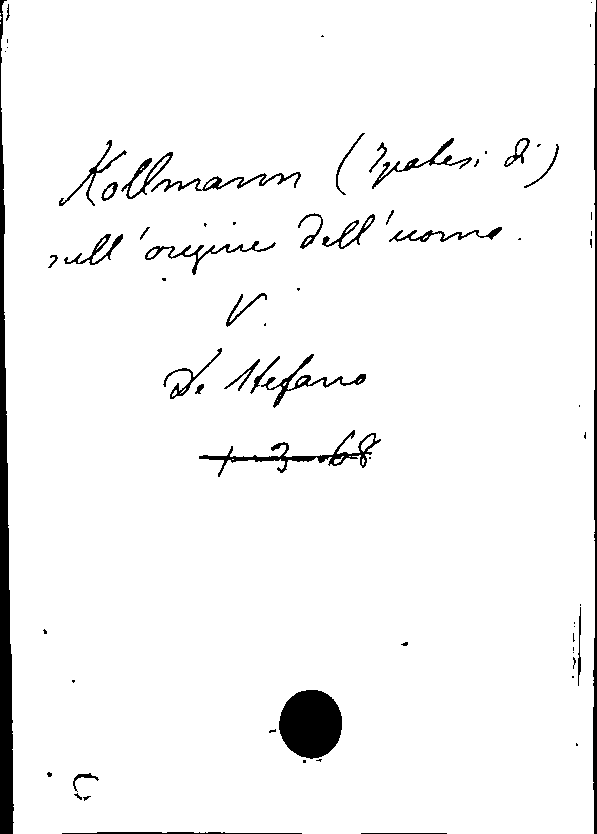 Kollmann (Ipotesi di)
sull'origine dell'uomo.
V.
De Stefano
1-3-68
C